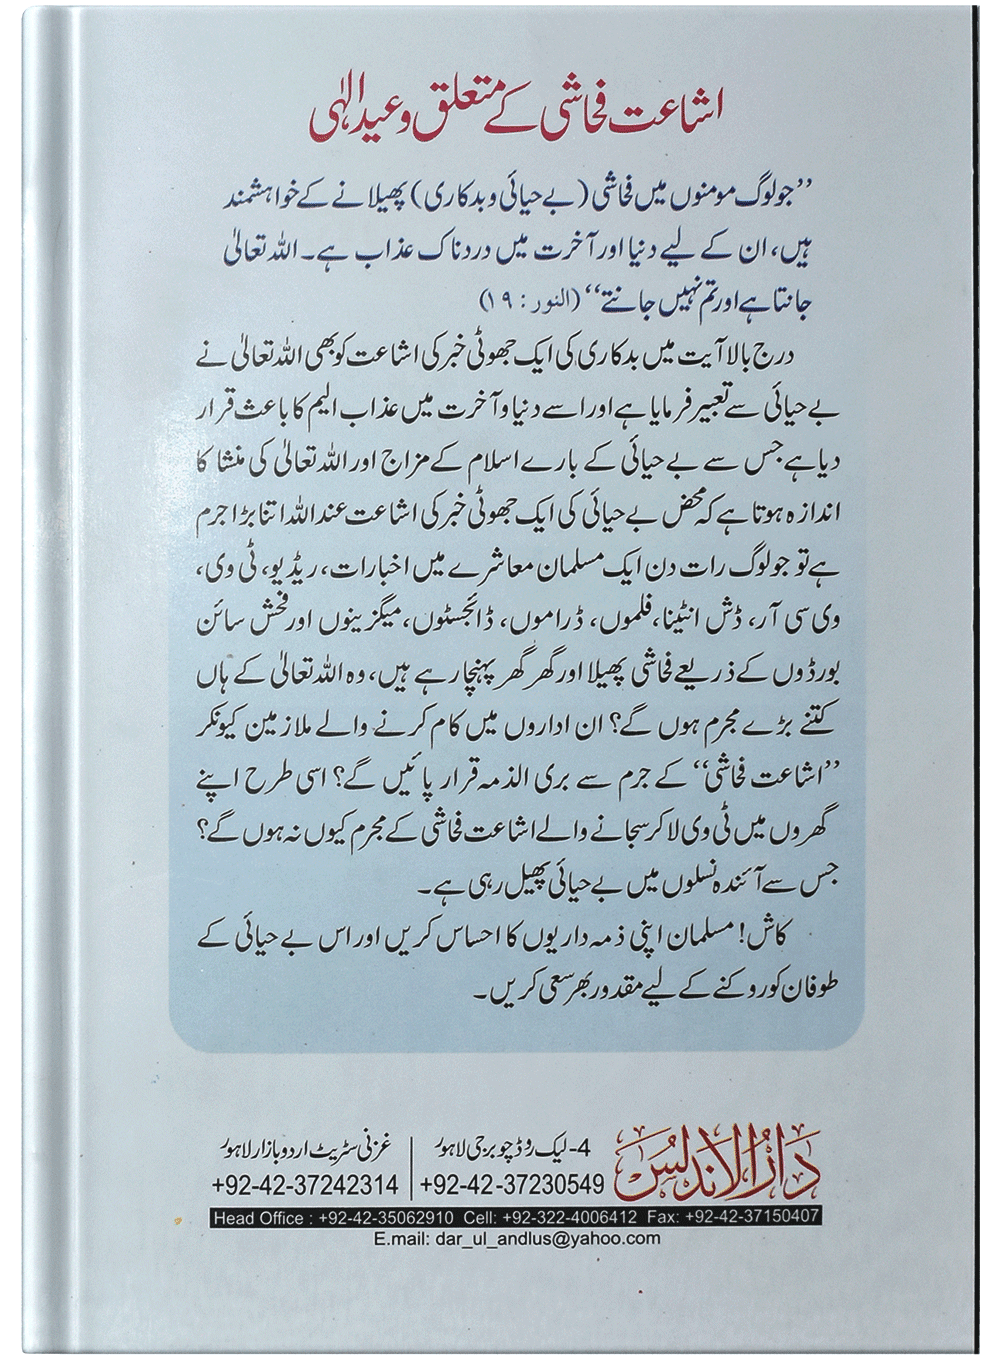 اشاعت فحاشی کے متعلق وعید الٰہی
’’جو لوگ مومنوں میں فحاشی (بے حیائی و بدکاری) پھیلانے کے خواہشمند
ہیں، ان کے لیے دنیا اور آخرت میں دردناک عذاب ہے۔ اللہ تعالیٰ
جانتا ہے اور تم نہیں جانتے‘‘ (النور : ۱۹)
درج بالا آیت میں بدکاری کی ایک جھوٹی خبر کی اشاعت کو بھی اللہ تعالیٰ نے
بے حیائی سے تعبیر فرمایا ہے اور اسے دنیا و آخرت میں عذاب الیم کا باعث قرار
دیا ہے جس سے بے حیائی کے بارے اسلام کے مزاج اور اللہ تعالیٰ کی منشا کا
اندازہ ہوتا ہے کہ محض بے حیائی کی ایک جھوٹی خبر کی اشاعت عنداللہ اتنا بڑا جرم
ہے تو جو لوگ رات دن ایک مسلمان معاشرے میں اخبارات، ریڈیو، ٹی وی،
وی سی آر، ڈش انٹینا، فلموں، ڈراموں، ڈائجسٹوں، میگزینوں اور فحش سائن
بورڈوں کے ذریعے فحاشی پھیلا اور گھر گھر پہنچا رہے ہیں، وہ اللہ تعالیٰ کے ہاں
کتنے بڑے مجرم ہوں گے؟ ان اداروں میں کام کرنے والے ملازمین کیونکر
’’اشاعت فحاشی‘‘ کے جرم سے بری الذمہ قرار پائیں گے؟ اسی طرح اپنے
گھروں میں ٹی وی لا کر سجانے والے اشاعت فحاشی کے مجرم کیوں نہ ہوں گے؟
جس سے آئندہ نسلوں میں بے حیائی پھیل رہی ہے۔
کاش! مسلمان اپنی ذمہ داریوں کا احساس کریں اور اس بے حیائی کے
طوفان کو روکنے کے لیے مقدور بھر سعی کریں۔
دار الاندلس
4- لیک روڈ چوبرجی لاہور
+92-42-37230549
غزنی سٹریٹ اردو بازار لاہور
+92-42-37242314
Head Office : +92-42-35062910 Cell: +92-322-4006412 Fax: +92-42-37150407
E.mail: dar_ul_andlus@yahoo.com